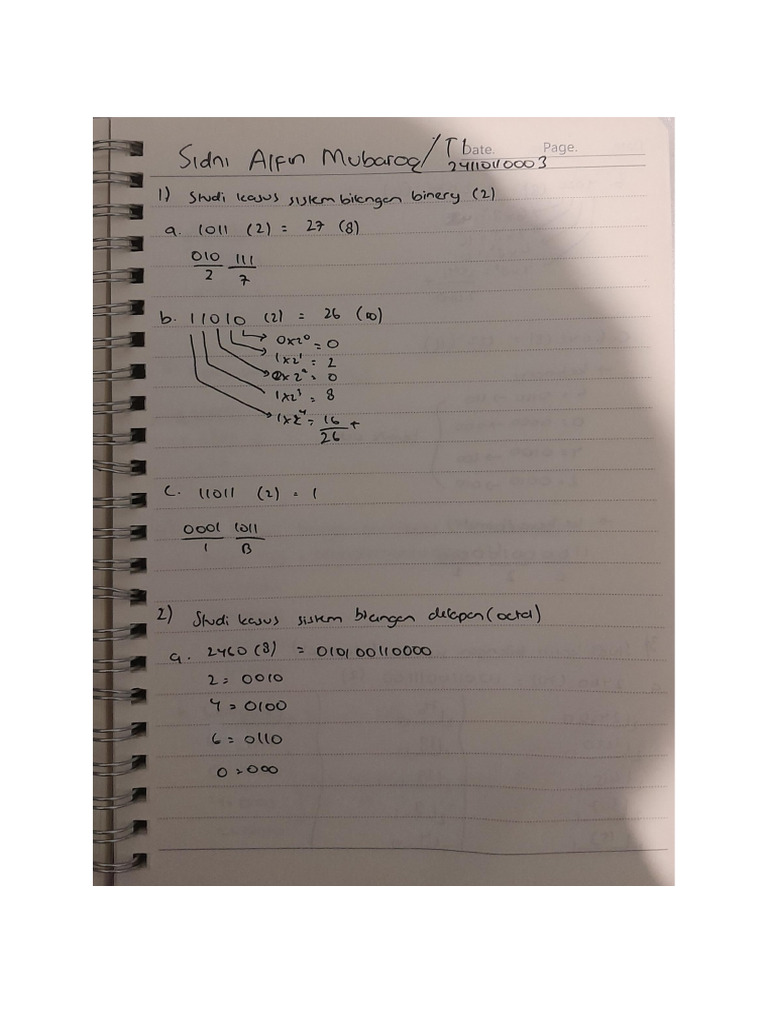 Sidni Alfin Mubaroq/TI Date. Page.
24110110003
1) Studi kasus sistem bilangan binery (2)
a. 1011 (2) = 27 (8)
010 111
2 7
b. 11010 (2) = 26 (10)
0x2⁰ = 0
1x2¹ = 2
0x2² = 0
1x2³ = 8
1x2⁴ = 16 +
26
c. 11011 (2) = 1
0001 1011
1 B
2) Studi kasus sistem bilangan delapan (octal)
a. 2460 (8) = 010100110000
2 = 0010
4 = 0100
6 = 0110
0 = 000